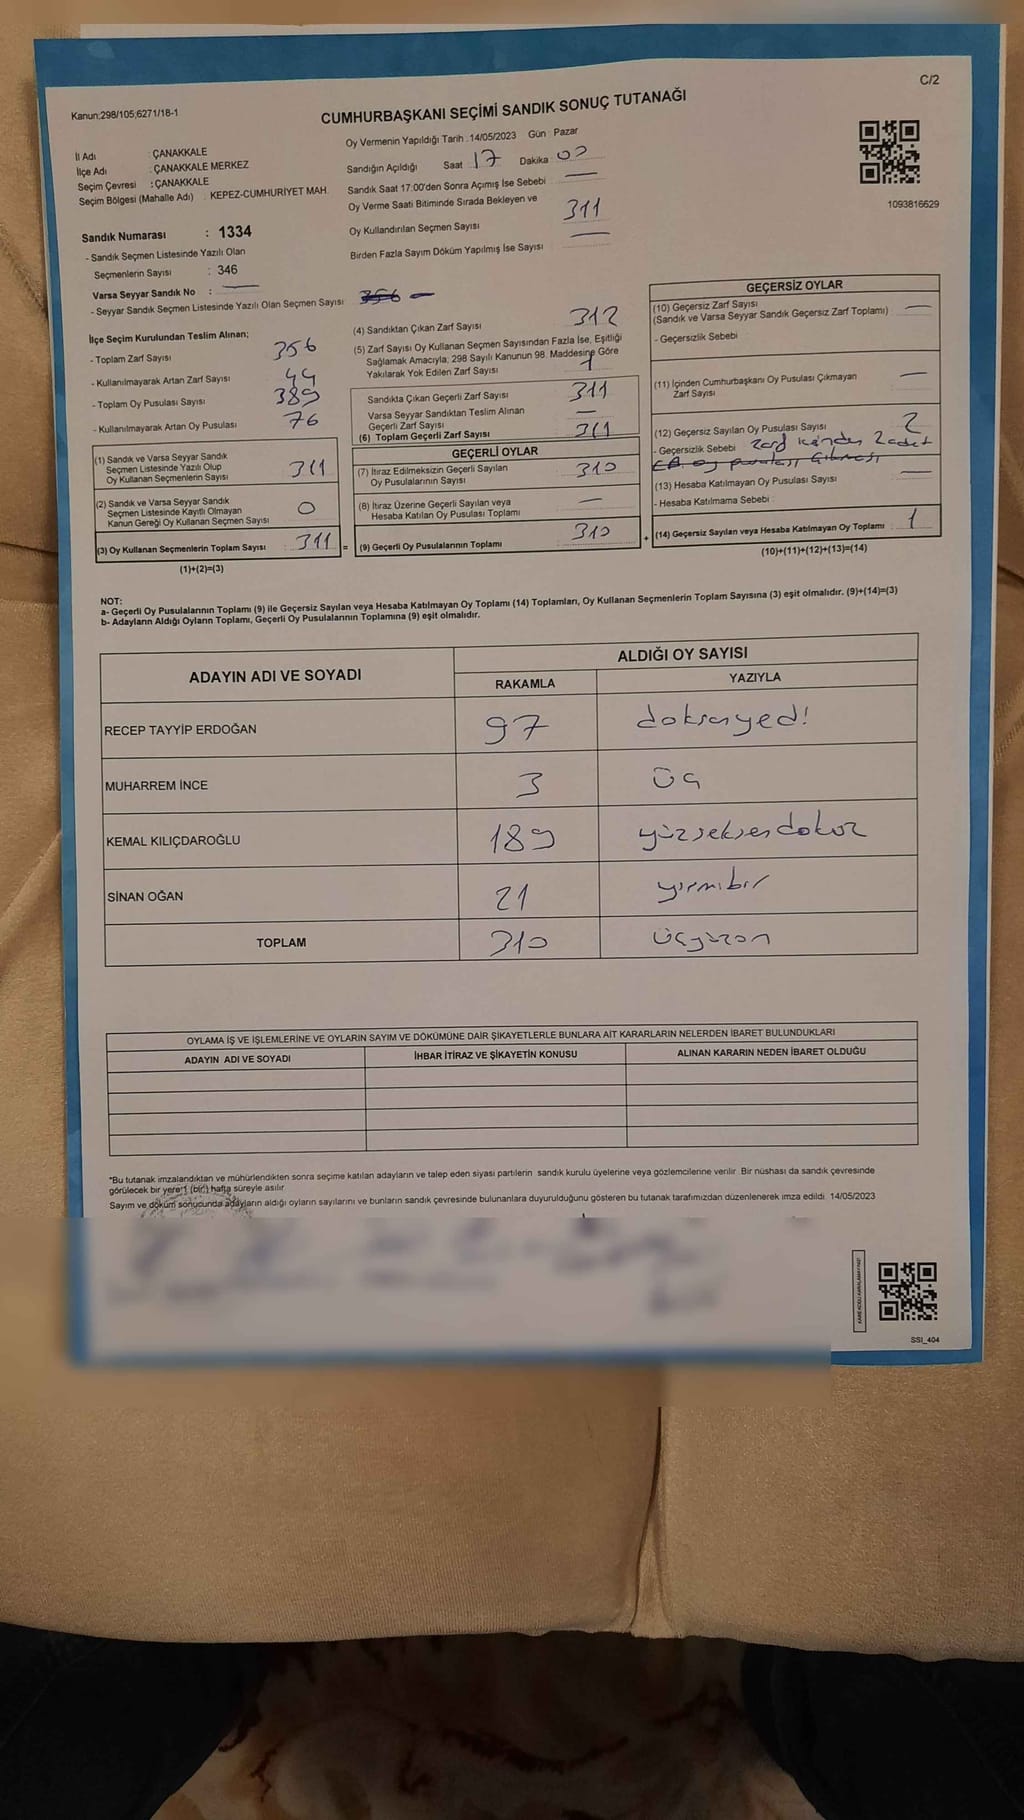 C/2
Kanun;298/105;6271/18-1
CUMHURBAŞKANI SEÇİMİ SANDIK SONUÇ TUTANAĞI
İl Adı : ÇANAKKALE
İlçe Adı : ÇANAKKALE MERKEZ
Seçim Çevresi : ÇANAKKALE
Seçim Bölgesi (Mahalle Adı) : KEPEZ-CUMHURİYET MAH.
Sandık Numarası : 1334
- Sandık Seçmen Listesinde Yazılı Olan
Seçmenlerin Sayısı : 346
Varsa Seyyar Sandık No : —
- Seyyar Sandık Seçmen Listesinde Yazılı Olan Seçmen Sayısı : —
Oy Vermenin Yapıldığı Tarih :14/05/2023 Gün : Pazar
Sandığın Açıldığı Saat 17 Dakika 00
Sandık Saat 17:00'den Sonra Açımış İse Sebebi —
Oy Verme Saati Bitiminde Sırada Bekleyen ve
Oy Kullandırılan Seçmen Sayısı 311
Birden Fazla Sayım Döküm Yapılmış İse Sayısı —
1093816629
İlçe Seçim Kurulundan Teslim Alınan;
- Toplam Zarf Sayısı 356
- Kullanılmayarak Artan Zarf Sayısı 44
- Toplam Oy Pusulası Sayısı 389
- Kullanılmayarak Artan Oy Pusulası 76
(1) Sandık ve Varsa Seyyar Sandık
Seçmen Listesinde Yazılı Olup
Oy Kullanan Seçmenlerin Sayısı 311
(2) Sandık ve Varsa Seyyar Sandık
Seçmen Listesinde Kayıtlı Olmayan
Kanun Gereği Oy Kullanan Seçmen Sayısı 0
(3) Oy Kullanan Seçmenlerin Toplam Sayısı : 311 =
(1)+(2)=(3)
(4) Sandıktan Çıkan Zarf Sayısı 312
(5) Zarf Sayısı Oy Kullanan Seçmen Sayısından Fazla İse, Eşitliği
Sağlamak Amacıyla, 298 Sayılı Kanunun 98. Maddesine Göre
Yakılarak Yok Edilen Zarf Sayısı 1
Sandıkta Çıkan Geçerli Zarf Sayısı 311
Varsa Seyyar Sandıktan Teslim Alınan
Geçerli Zarf Sayısı —
(6) Toplam Geçerli Zarf Sayısı 311
GEÇERLİ OYLAR
(7) İtiraz Edilmeksizin Geçerli Sayılan
Oy Pusulalarının Sayısı 310
(8) İtiraz Üzerine Geçerli Sayılan veya
Hesaba Katılan Oy Pusulası Toplamı —
(9) Geçerli Oy Pusulalarının Toplamı 310 +
GEÇERSİZ OYLAR
(10) Geçersiz Zarf Sayısı
(Sandık ve Varsa Seyyar Sandık Geçersiz Zarf Toplamı) —
- Geçersizlik Sebebi
(11) İçinden Cumhurbaşkanı Oy Pusulası Çıkmayan
Zarf Sayısı —
(12) Geçersiz Sayılan Oy Pusulası Sayısı 2
- Geçersizlik Sebebi Zarf içinden 2 adet
CB oy pusulası çıkması
(13) Hesaba Katılmayan Oy Pusulası Sayısı —
- Hesaba Katılmama Sebebi :
(14) Geçersiz Sayılan veya Hesaba Katılmayan Oy Toplamı : 1
(10)+(11)+(12)+(13)=(14)
NOT:
a- Geçerli Oy Pusulalarının Toplamı (9) ile Geçersiz Sayılan veya Hesaba Katılmayan Oy Toplamı (14) Toplamları, Oy Kullanan Seçmenlerin Toplam Sayısına (3) eşit olmalıdır. (9)+(14)=(3)
b- Adayların Aldığı Oyların Toplamı, Geçerli Oy Pusulalarının Toplamına (9) eşit olmalıdır.
ADAYIN ADI VE SOYADI ALDIĞI OY SAYISI
RAKAMLA YAZIYLA
RECEP TAYYİP ERDOĞAN 97 doksanyedi
MUHARREM İNCE 3 üç
KEMAL KILIÇDAROĞLU 189 yüzseksendokuz
SİNAN OĞAN 21 yirmibir
TOPLAM 310 üçyüzon
OYLAMA İŞ VE İŞLEMLERİNE VE OYLARIN SAYIM VE DÖKÜMÜNE DAİR ŞİKAYETLERLE BUNLARA AİT KARARLARIN NELERDEN İBARET BULUNDUKLARI
ADAYIN ADI VE SOYADI İHBAR İTİRAZ VE ŞİKAYETİN KONUSU ALINAN KARARIN NEDEN İBARET OLDUĞU
*Bu tutanak imzalandıktan ve mühürlendikten sonra seçime katılan adayların ve talep eden siyasi partilerin sandık kurulu üyelerine veya gözlemcilerine verilir. Bir nüshası da sandık çevresinde
görülecek bir yere 1 (bir) hafta süreyle asılır.
Sayım ve döküm sonucunda adayların aldığı oyların sayılarını ve bunların sandık çevresinde bulunanlara duyurulduğunu gösteren bu tutanak tarafımızdan düzenlenerek imza edildi. 14/05/2023
SSI_404